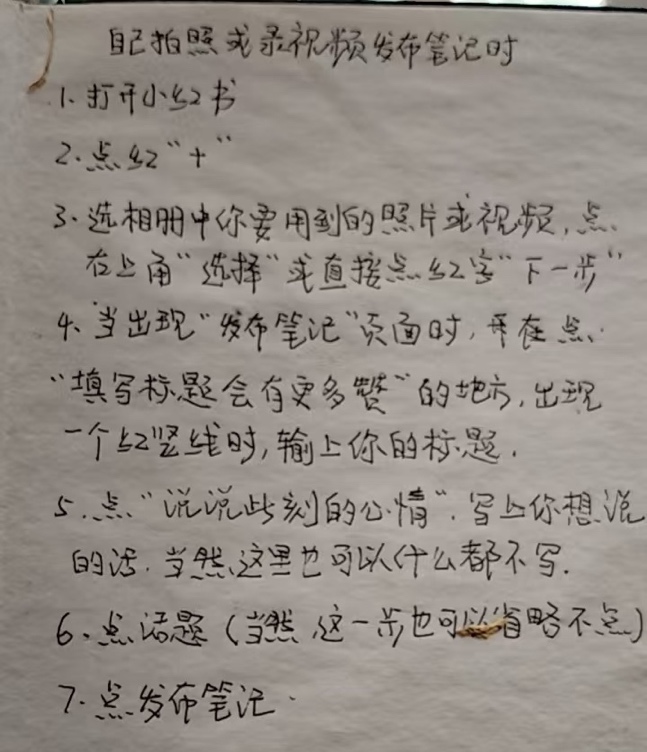 自己拍照或录视频发布笔记时
1、打开小红书
2、点红“+“
3、选相册中你要用到的照片或视频,点
右上角“选择“或直接点红字“下一步“
4、当出现“发布笔记“页面时,再在点
“填写标题会有更多赞“的地方,出现
一个红竖线时,输上你的标题.
5、点“说说此刻的心情“.写上你想说
的话.当然这里也可以什么都不写.
6、点话题(当然这一步也可以省略不点)
7、点发布笔记.